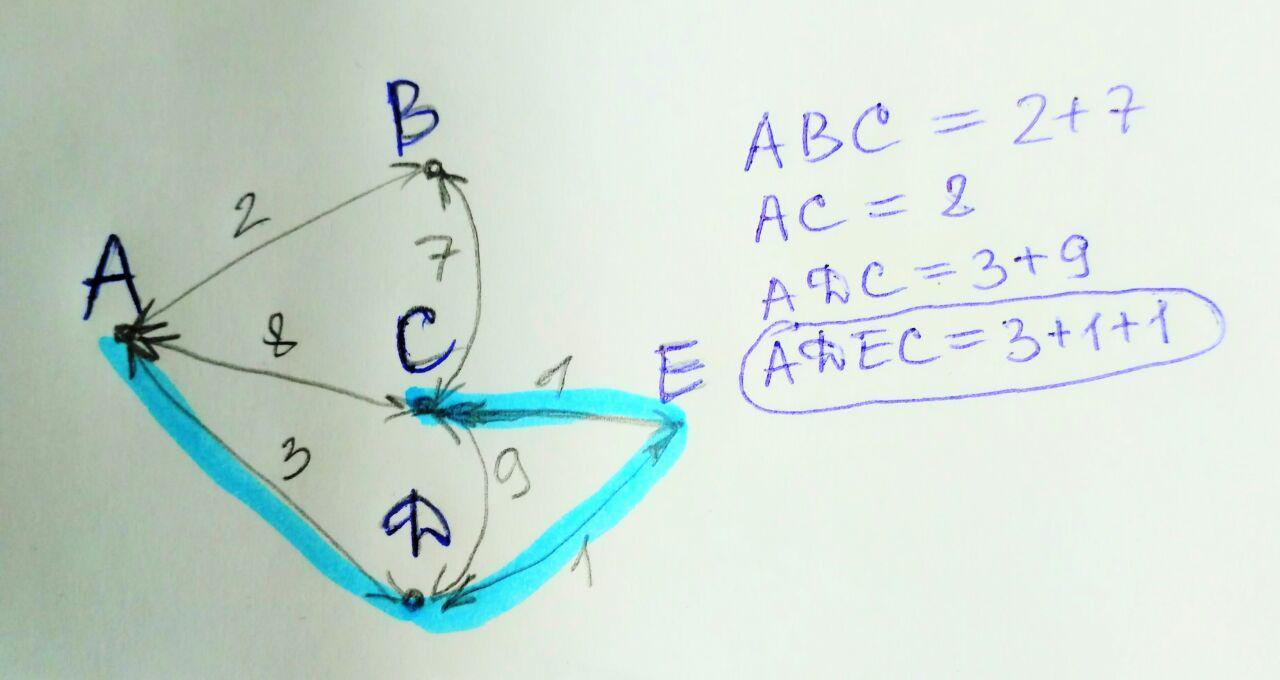 B
2
7
A
8
C
1
E
3
9
D
1
ABC = 2+7
AC = 8
ADC = 3+9
ADEC = 3+1+1